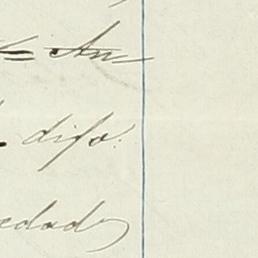 = An=
dijo:
edad,